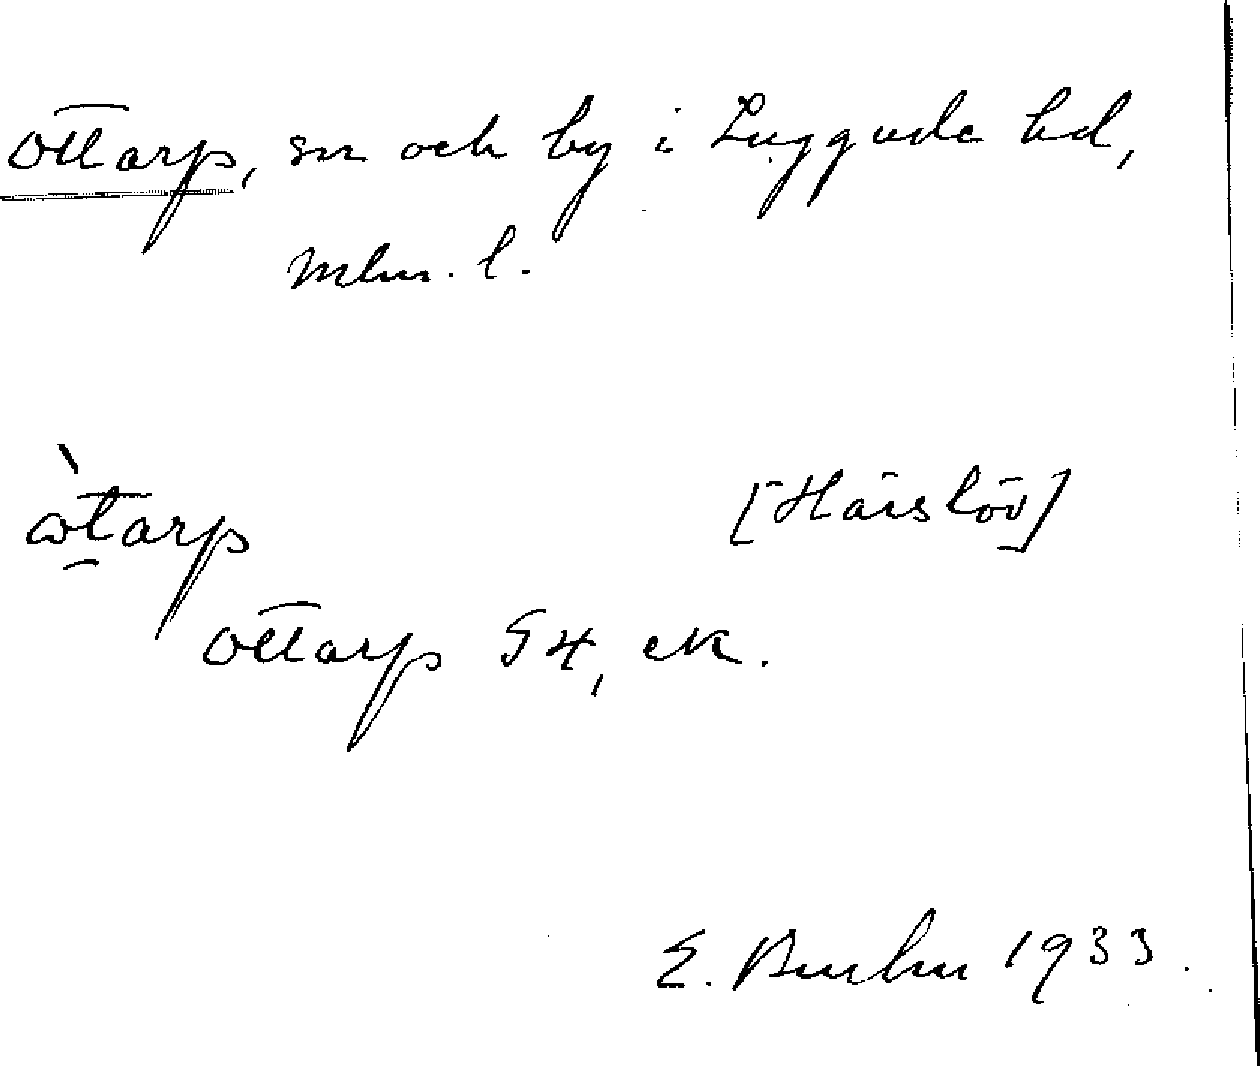 Ottarp, sn och by i Luggude hd,
Mlm. l.
ὼtarp [Härslöv]
Ottarp G4, EK.
E. 1933.